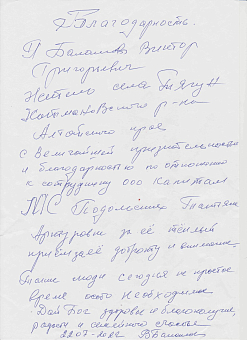 Благодарность.
Я Балашов Виктор
Григорьевич
Житель села Тягун
Кытмановского р-на
Алтайского края
с Величайшей признательностью
и благодарностью по отношению
к сотруднику ООО Капитал
МС Подолинских Татьяне
Артуровне за её тёплый
приём за её доброту и внимание.
Такие люди сегодня не простое
время особо необходимы
Дай Бог здоровья и благополучия,
радости и семейного счастья
22.07-2022 Балашов